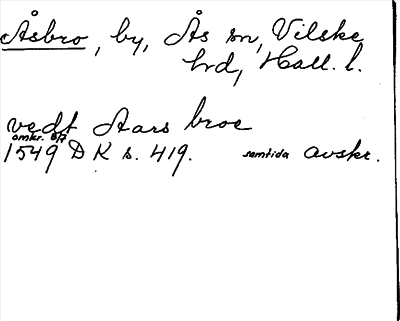 Åsbro, by, Ås sn, Vilske
hrd, Hall. l.
vedt Aars broe
omkr. 8/7
1549 D K s. 419. samtida avskr.